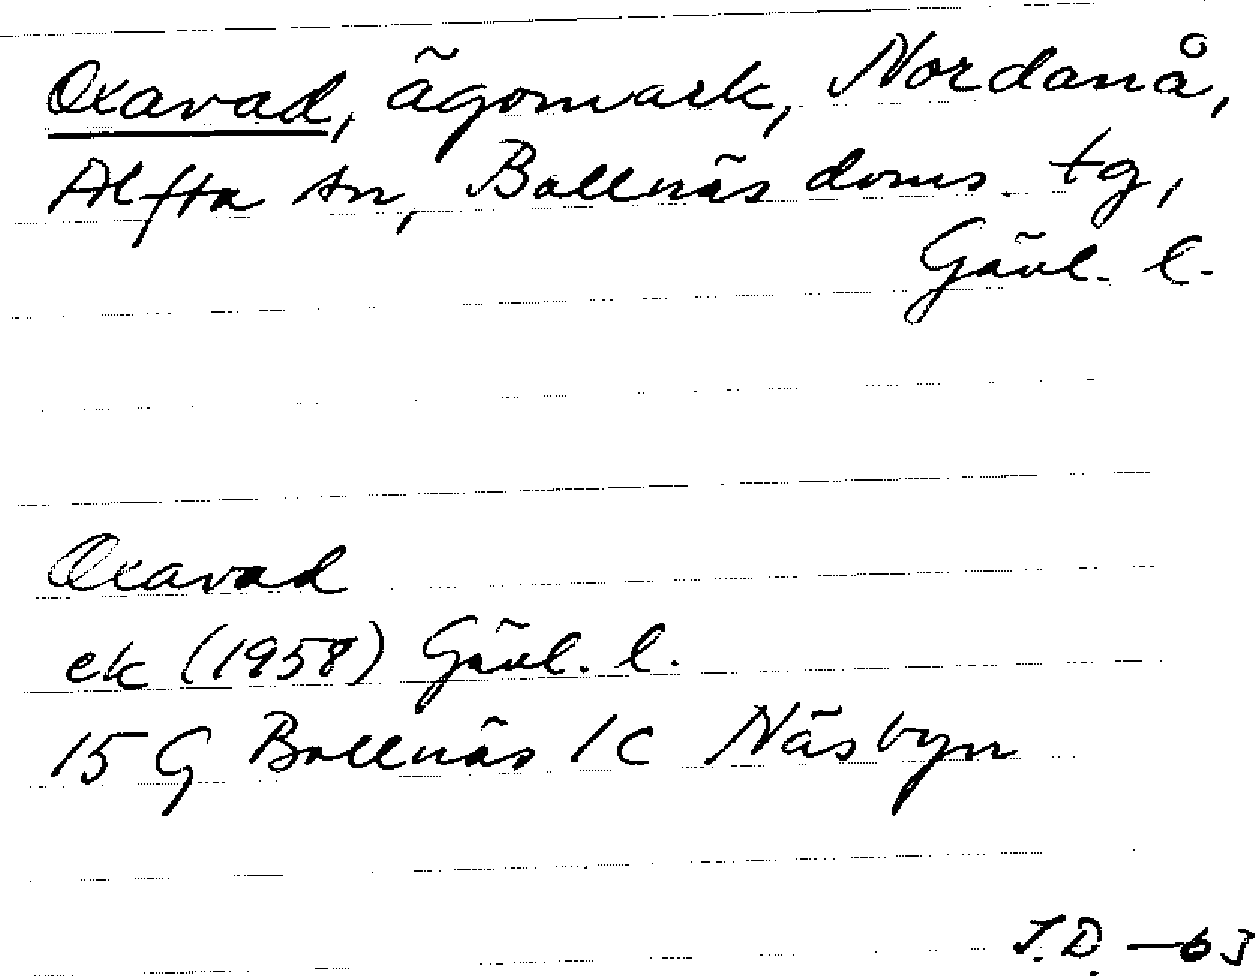 Oxavad, ägomark, Nordanå,
Alfta sn, Bollnäs doms. tg,
Gävl. l.
Oxavad
ek (1958) Gävl. l.
15 G Bollnäs 1c Näsbyn
J.D. -63